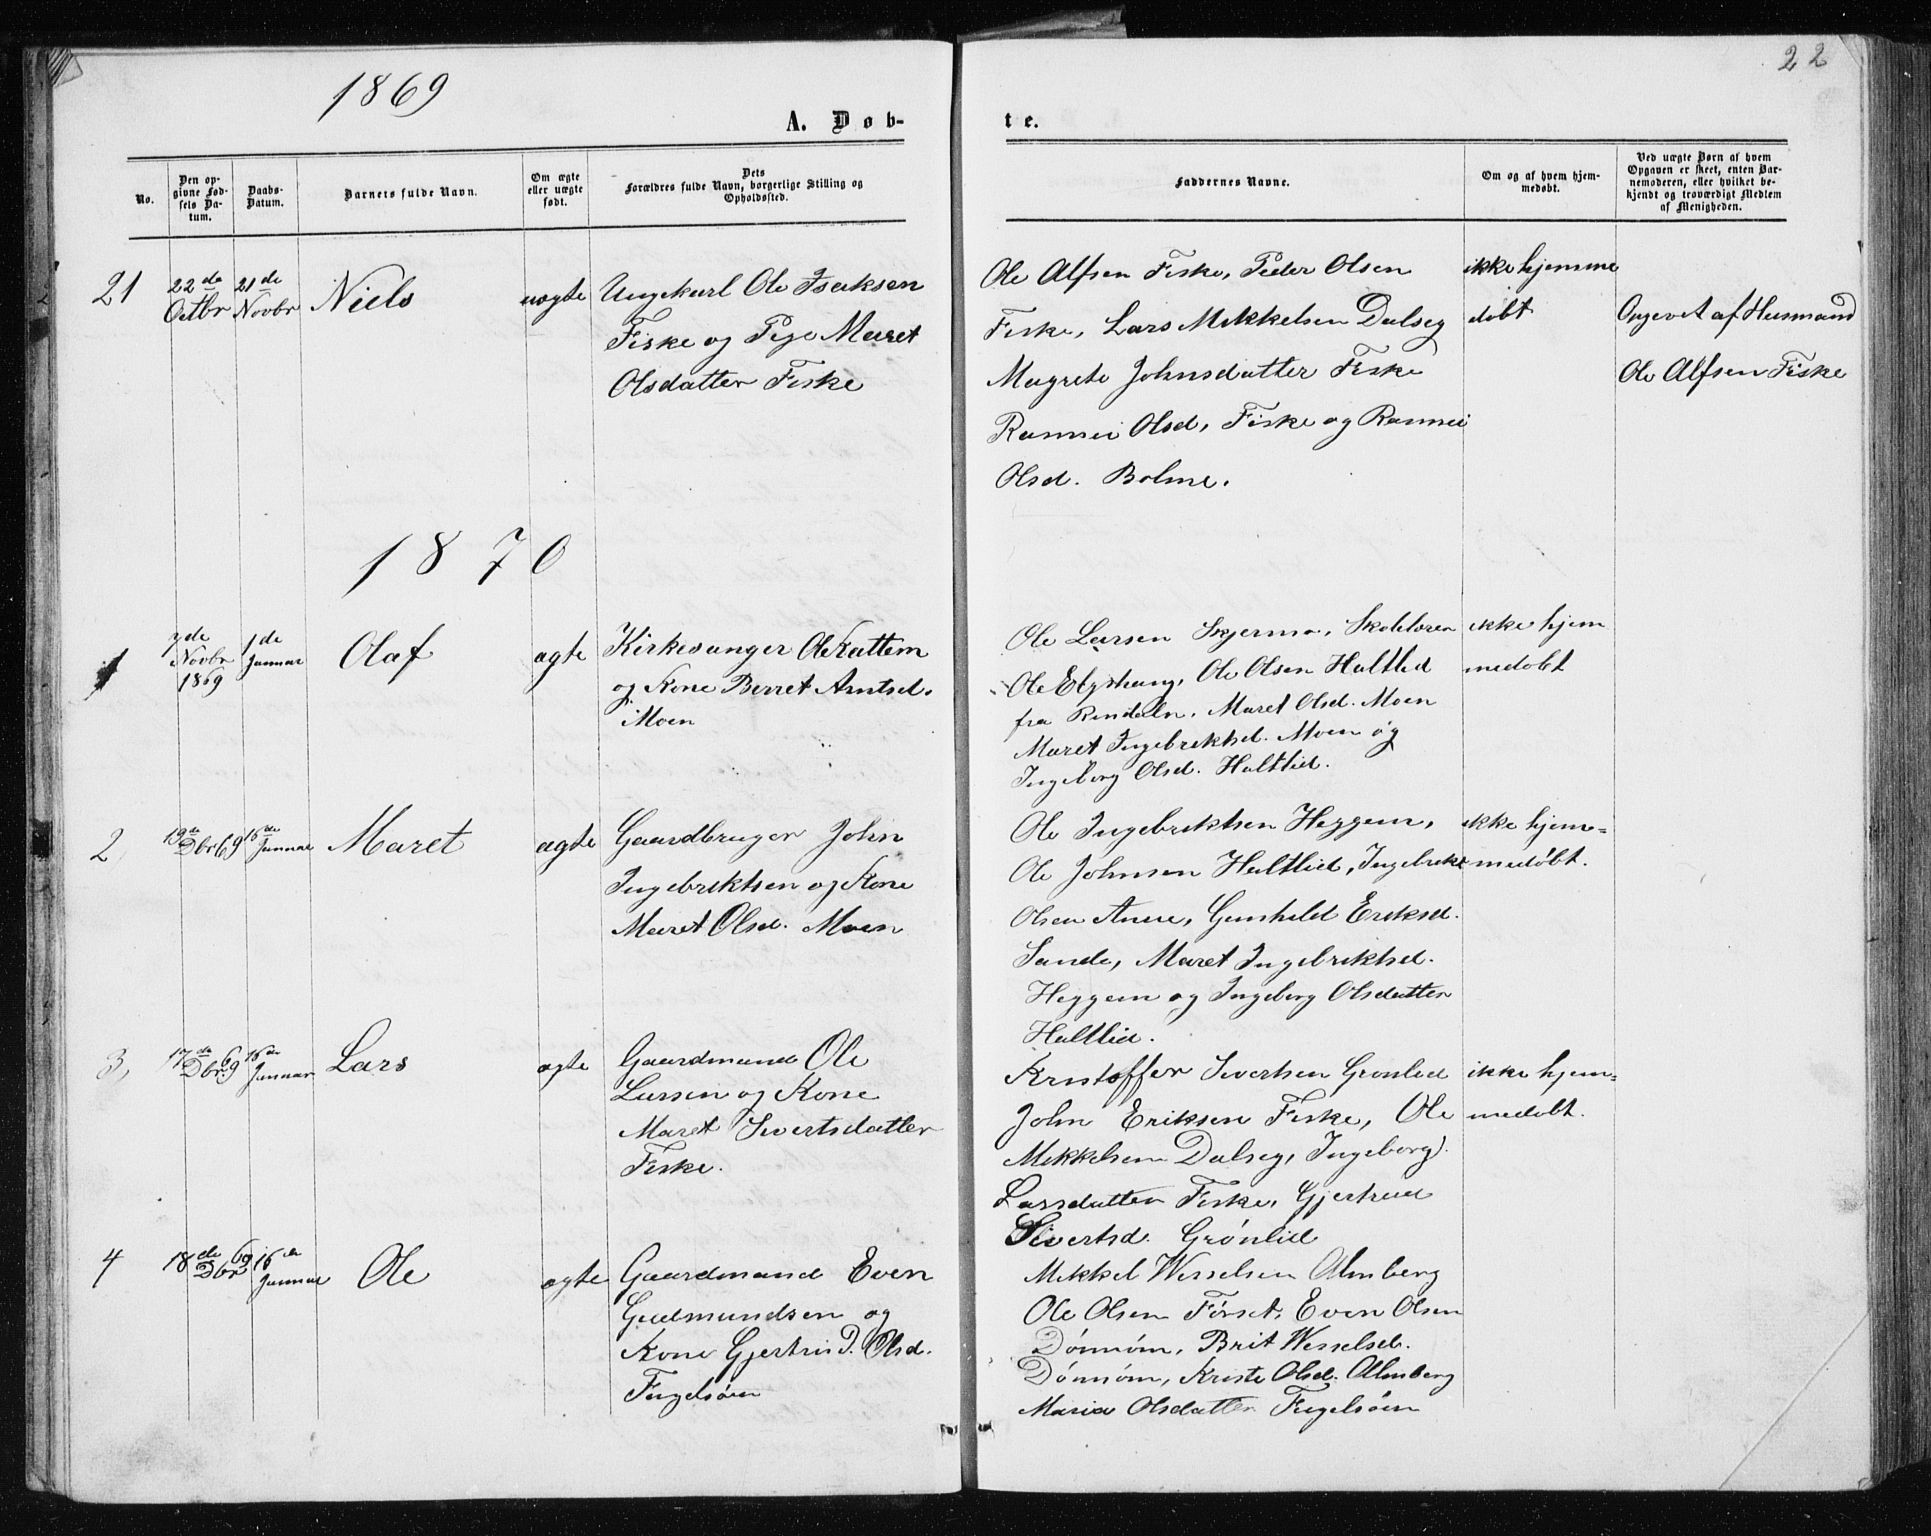 1869
22
A. Døb-
te.
No.
Den op-
givne Fød-
sels Da-
tum.
Daabs-
Datum.
Barnets fulde Navn.
Om ægte
eller uægte
født.
Dets
Forældres fulde Navn, borgerlige Stilling og
Opholdssted.
Faddernes Navne.
Om og af hvem hjem-
medøbt.
Ved uægte Børn af hvem
Opgaven er skeet, enten Bar-
nemoderen, eller hvilket be-
kjendt og troværdigt Medlem
af Menigheden.
21
22de
Octbr
21de
Novbr
Niels
uægte
Ungekarl Ole Isaksen
Fiske og Pige Maret
Olsdatter Fiske
Ole Alfsen Fiske, Peder Olsen
Fiske, Lars Mikkelsen Dalseg
Magrete Johnsdatter Fiske
Rannei Olsd, Fiske og Rannei
Olsd. Bolme.
ikke hjemme
døbt
Opgevet af Husmand
Ole Alfsen Fiske
1870
1
7de
Novbr
1869
1de
Januar
Olaf
ægte
Kirkesanger Ole Kattem
og Kone Berret Arntsd.
Moen
Ole Larsen Skjermo, Skolelærer
Ole Elgshaug, Ole Olsen Haltlid
fra Rindaln, Maret Olsd. Moen
Maret Ingebriktsd. Moen og
Ingeborg Olsd. Haltlid.
ikke hjem
medøbt
2,
19de
Dbr 69
16de
Januar
Maret
ægte
Gaardbruger John
Ingebriktsen og Kone
Maret Olsd. Moen
Ole Ingebriktsen Heggem,
Ole Johnsen Haltlid, Ingebrikt
Olsen Aune, Gunhild Eriksd.
Sande, Maret Ingebriktsd.
Heggem og Ingeborg Olsdatter
Haltlid.
ikke hjem=
medøbt.
3,
17de
Dbr. 69
16de
Januar
Lars
ægte
Gaardmand Ole
Larsen og Kone
Maret Sivertsdatter
Fiske.
Kristoffer Sivertsen Grønlid
John Eriksen Fiske, Ole
Mikkelsen Dalseg, Ingeborg
Larsdatter Fiske, Gjertrud
Sivertsd. Grønlid
ikke hjem=
medøbt.
4
18de
Dbr 69
16de
Januar
Ole
ægte
Gaardmand Even
Gudmundsen og
Kone Gjertrud. Olsd.
Fugelsøen
Mikkel Wesselsen Almberg
Ole Olsen Førset, Even Olsen
Dønnøm, Brit Wesselsd.
Dønnøm, Kristi Olsd. Almberg
Maria Olsdatter Fugelsøen